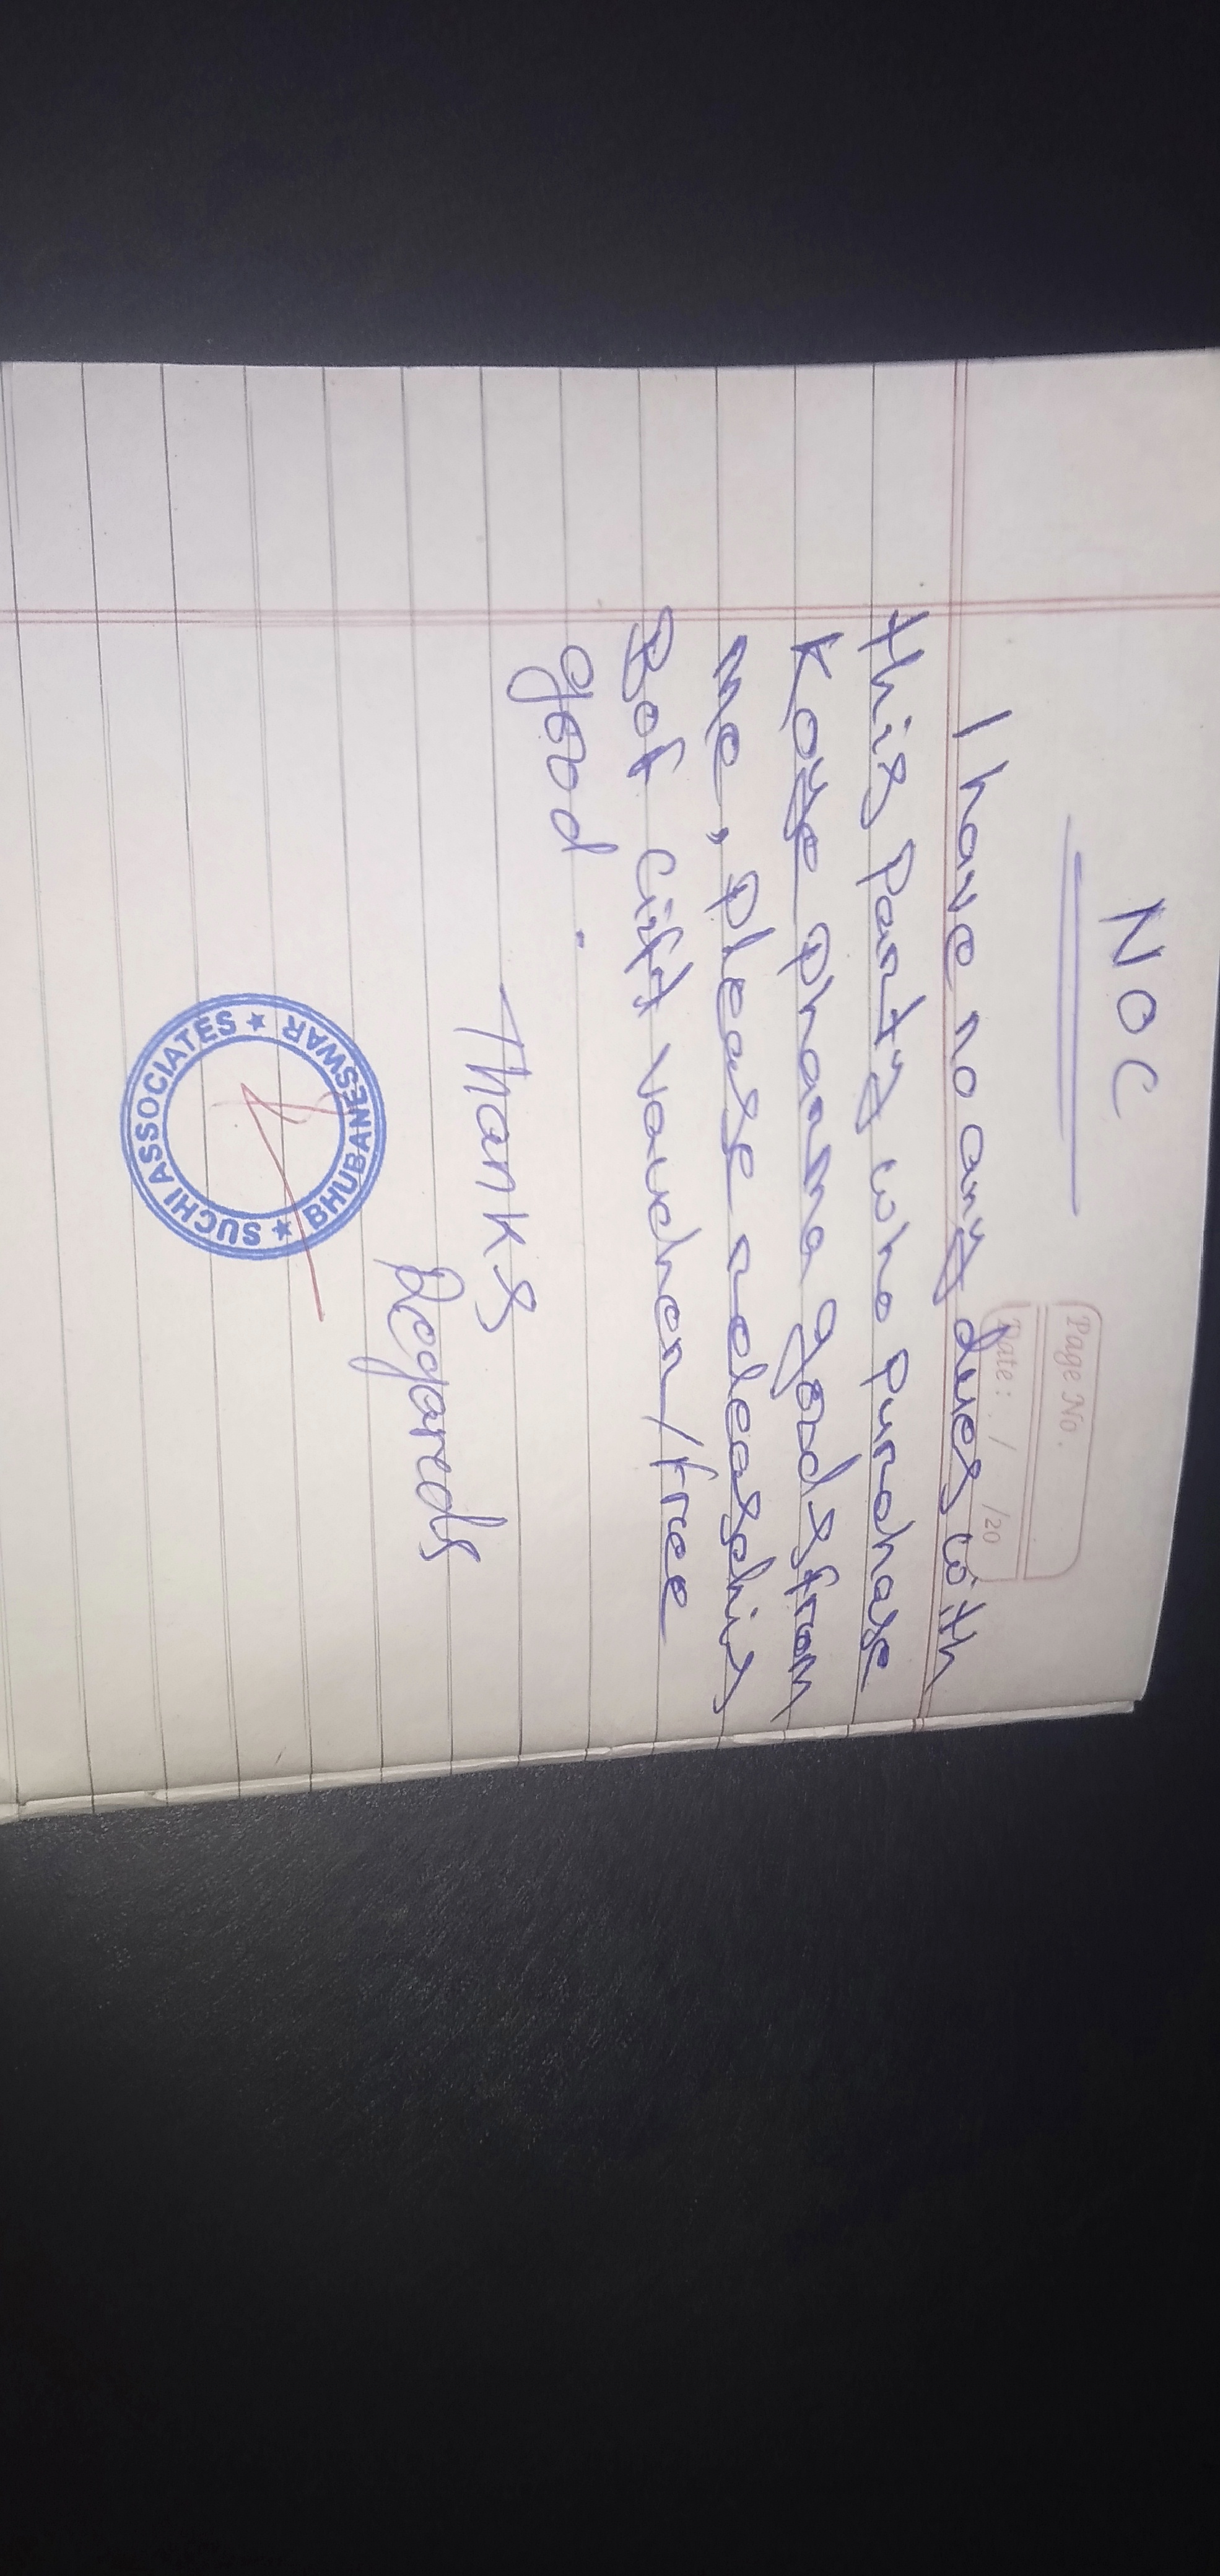 NOC
Page No.
Date: / /20
I have no any dues with
this party who purchase
Koye pharma goods from
me, please release his
Bof Gift voucher/free
good.
Thanks
Regards
SUCHI ASSOCIATES ★ BHUBANESWAR ★